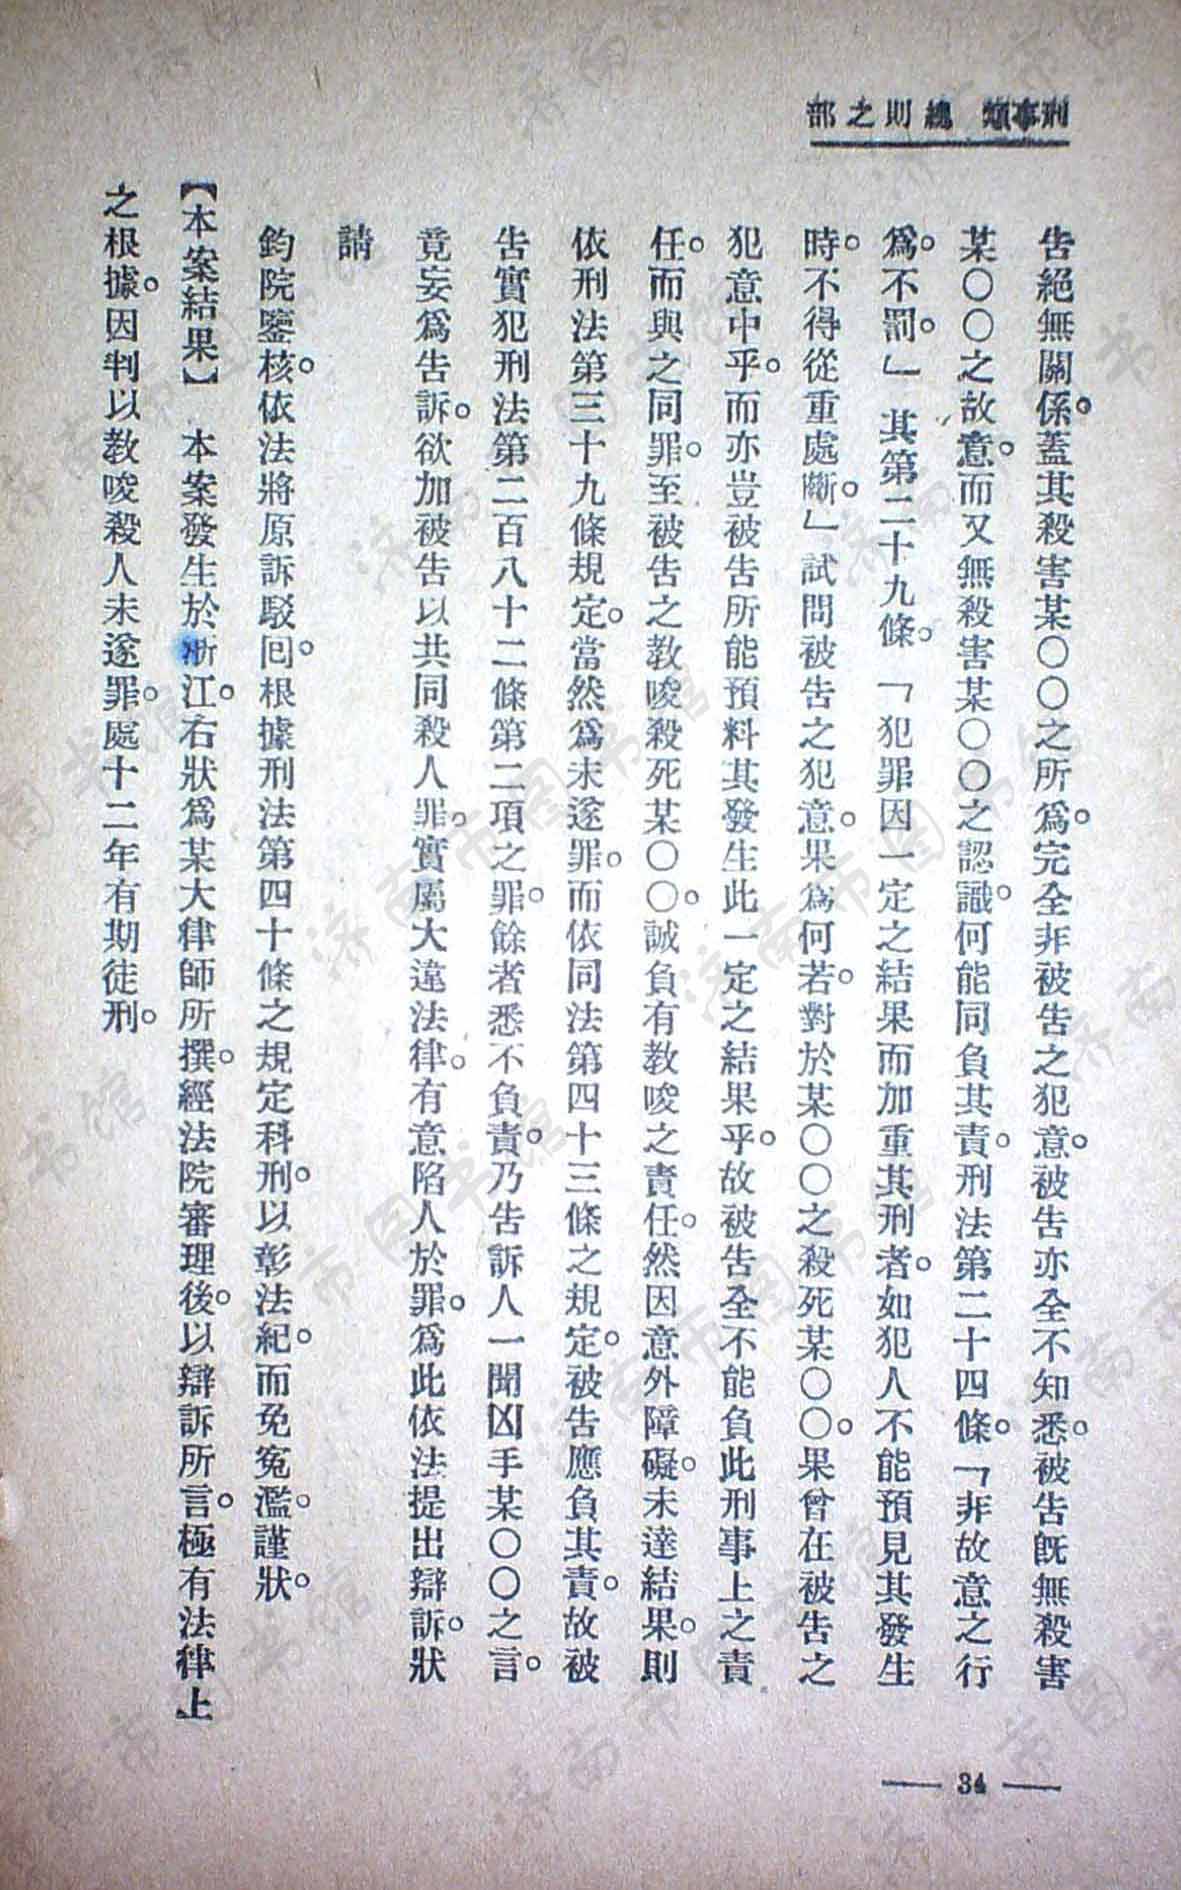 刑事類　總則之部
告絕無關係。蓋其殺害某〇〇之所爲。完全非被告之犯意。被告亦全不知悉。被告旣無殺害
某〇〇之故意。而又無殺害某〇〇之認識。何能同負其責。刑法第二十四條。「非故意之行
爲。不罰。」其第二十九條。「犯罪因一定之結果而加重其刑者。如犯人不能預見其發生
時。不得從重處斷。」試問被告之犯意。果爲何若。對於某〇〇之殺死某〇〇。果曾在被告之
犯意中乎。而亦豈被告所能預料其發生此一定之結果乎。故被告全不能負此刑事上之責
任。而與之同罪。至被告之教唆殺死某〇〇。誠負有教唆之責任。然因意外障礙。未達結果。則
依刑法第三十九條規定。當然爲未遂罪。而依同法第四十三條之規定。被告應負其責。故被
告實犯刑法第二百八十二條第二項之罪。餘者悉不負責。乃告訴人一聞凶手某〇〇之言。
竟妄爲告訴。欲加被告以共同殺人罪。實屬大違法律。有意陷人於罪。爲此依法提出辯訴。狀
請
鈞院鑒核。依法將原訴駁回。根據刑法第四十條之規定科刑。以彰法紀。而免冤濫。謹狀。
【本案結果】　本案發生於浙江。右狀爲某大律師所撰。經法院審理後。以辯訴所言。極有法律上
之根據。因判以教唆殺人未遂罪。處十二年有期徒刑。
— 34 —
济南市图书馆